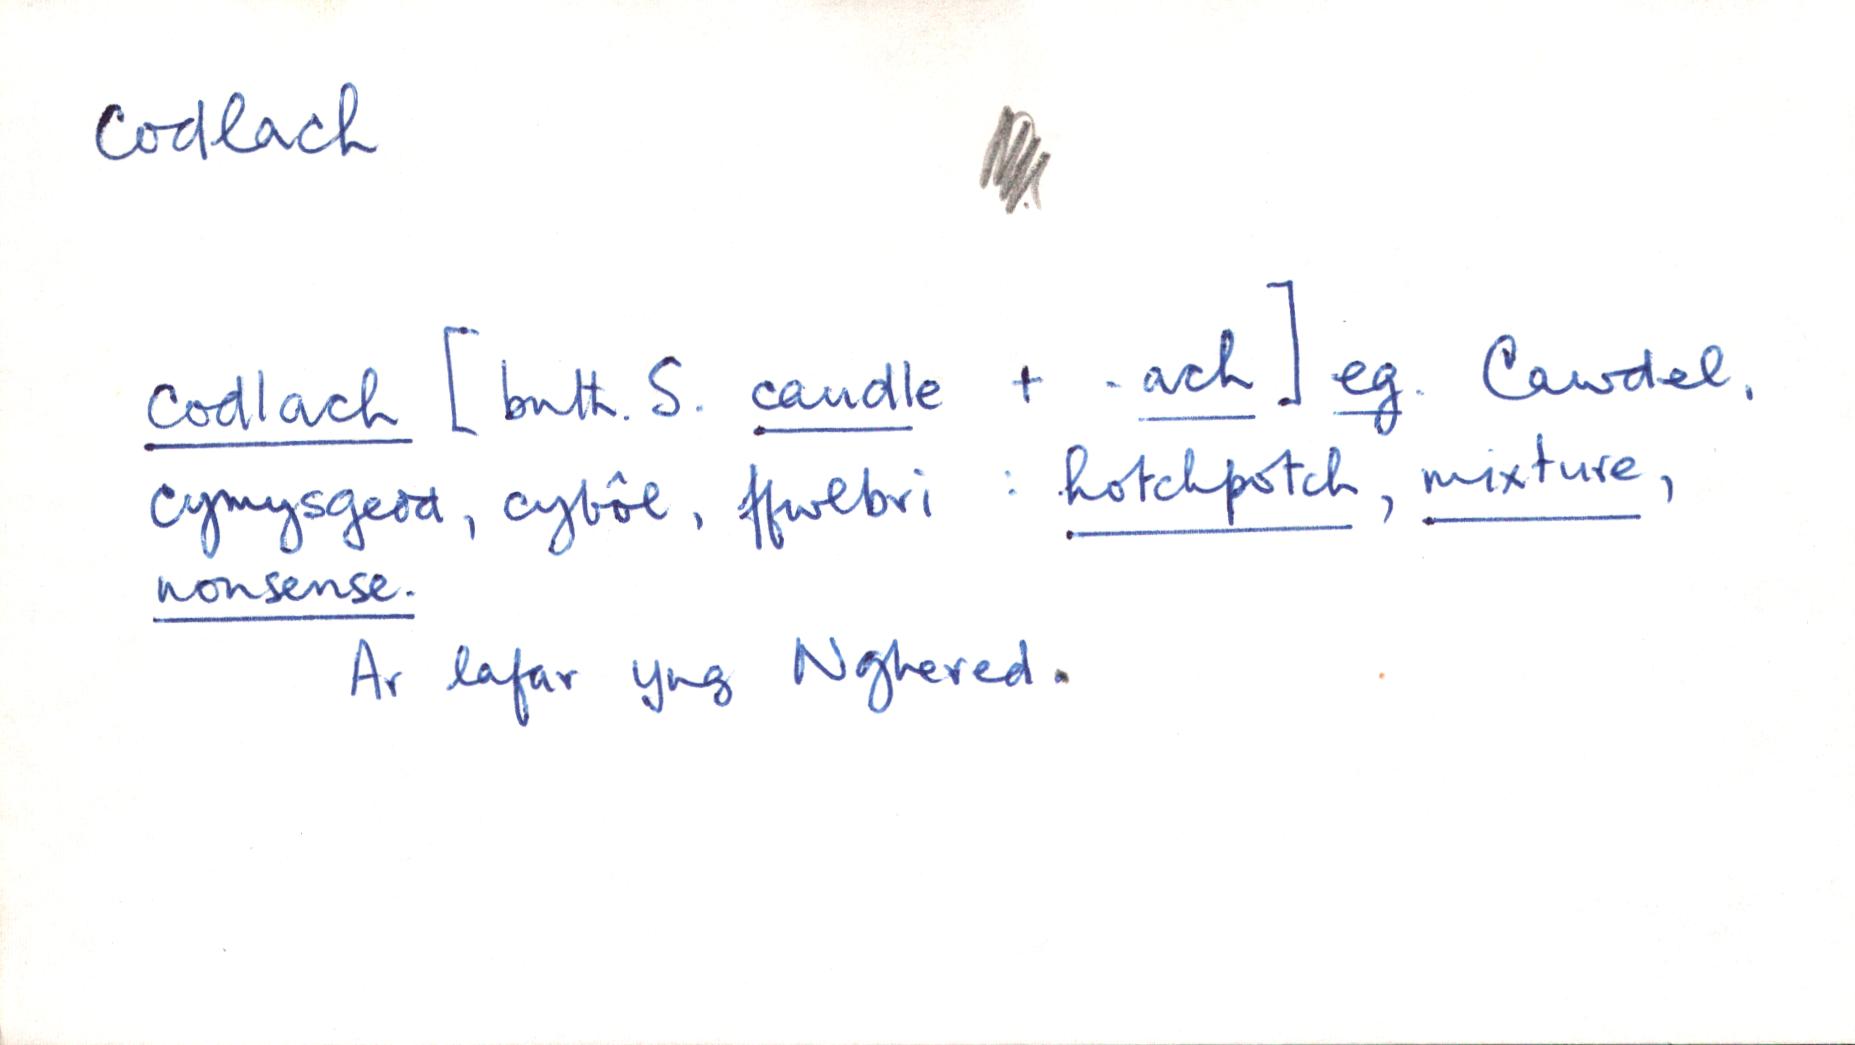 Codlach
codlach [bnth. S. caudle + -ach] eg. Cawdel,
cymysgedd, cybôl, ffwlbri : hotchpotch, mixture,
nonsense.
Ar lafar yng Nghered.